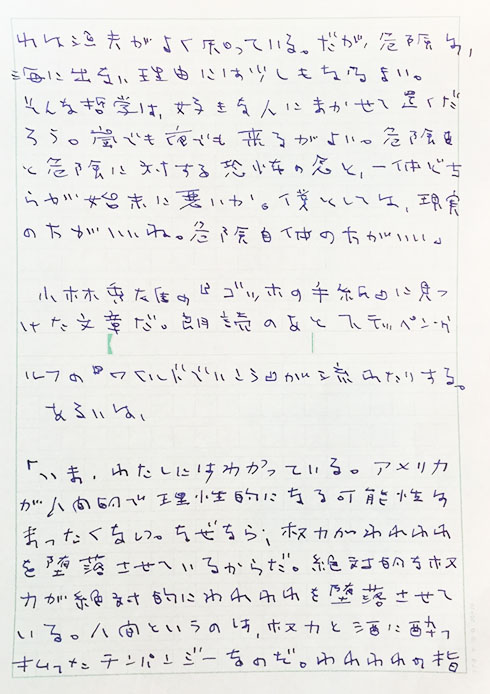 れは漁夫がよく知っている。だが、危険は、
海に出ない理由には少しもなるまい。
そんな哲学は、好きな人にまかせて置くだ
ろう。嵐でも夜でも来るがよい。危険自
と危険に対する恐怖の念と、一体どち
らが始末に悪いか。僕としては、現実
の方がいいね。危険自体の方がいい」
小林秀雄の『ゴッホの手紙』に見つ
けた文章だ。朗読のあとステッペンウ
ルフの『ワイルドでいこう』が流れたりする。
あるいは、
「いま、わたしにはわかっている。アメリカ
が人間的で理性的になる可能性は
まったくない。なぜなら、权力がわれわれ
を堕落させているからだ。絶対的な权
力が絶対的にわれわれを堕落させて
いる。人間というのは、权力と酒に酔っ
払ったチンパンジーなのだ。われわれの指